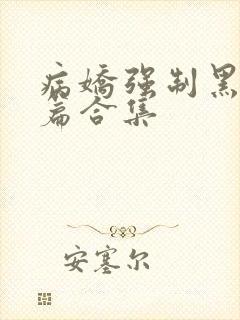 病嬌强制黑
篇合集
安塞尔